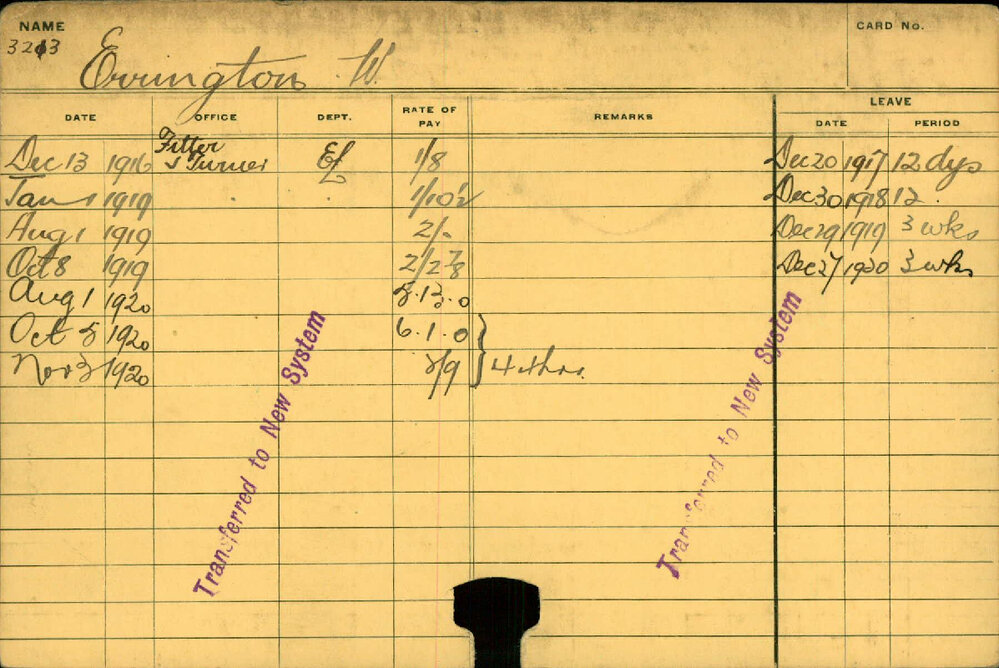 NAME
CARD No.
3213
Errington W.
DATE OFFICE DEPT. RATE OF PAY REMARKS LEAVE
DATE PERIOD
Dec 13 1916 Fitter & Turner EL 1/8 Dec 20 1917 12 dys
Jan 1 1919 1/10½ Dec 30 1918 12
Aug 1 1919 2/- Dec 29 1919 3 wks
Oct 8 1919 2/2⅞ Dec 27 1920 3 wks
Aug 1 1920 5.13.0
Oct 8 1920 6.1.0
Nov 3 1920 2/9 44 hrs.
Transferred to New System
Transferred to New System